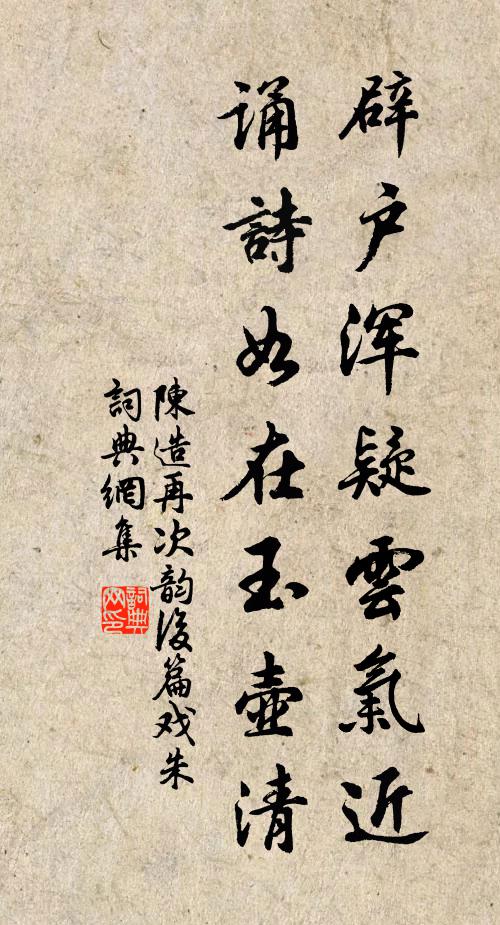 辟户浑疑雲氣近
诵詩如在玉壺清
陳造再次韵後篇戏朱
詞典網集
詞典网印